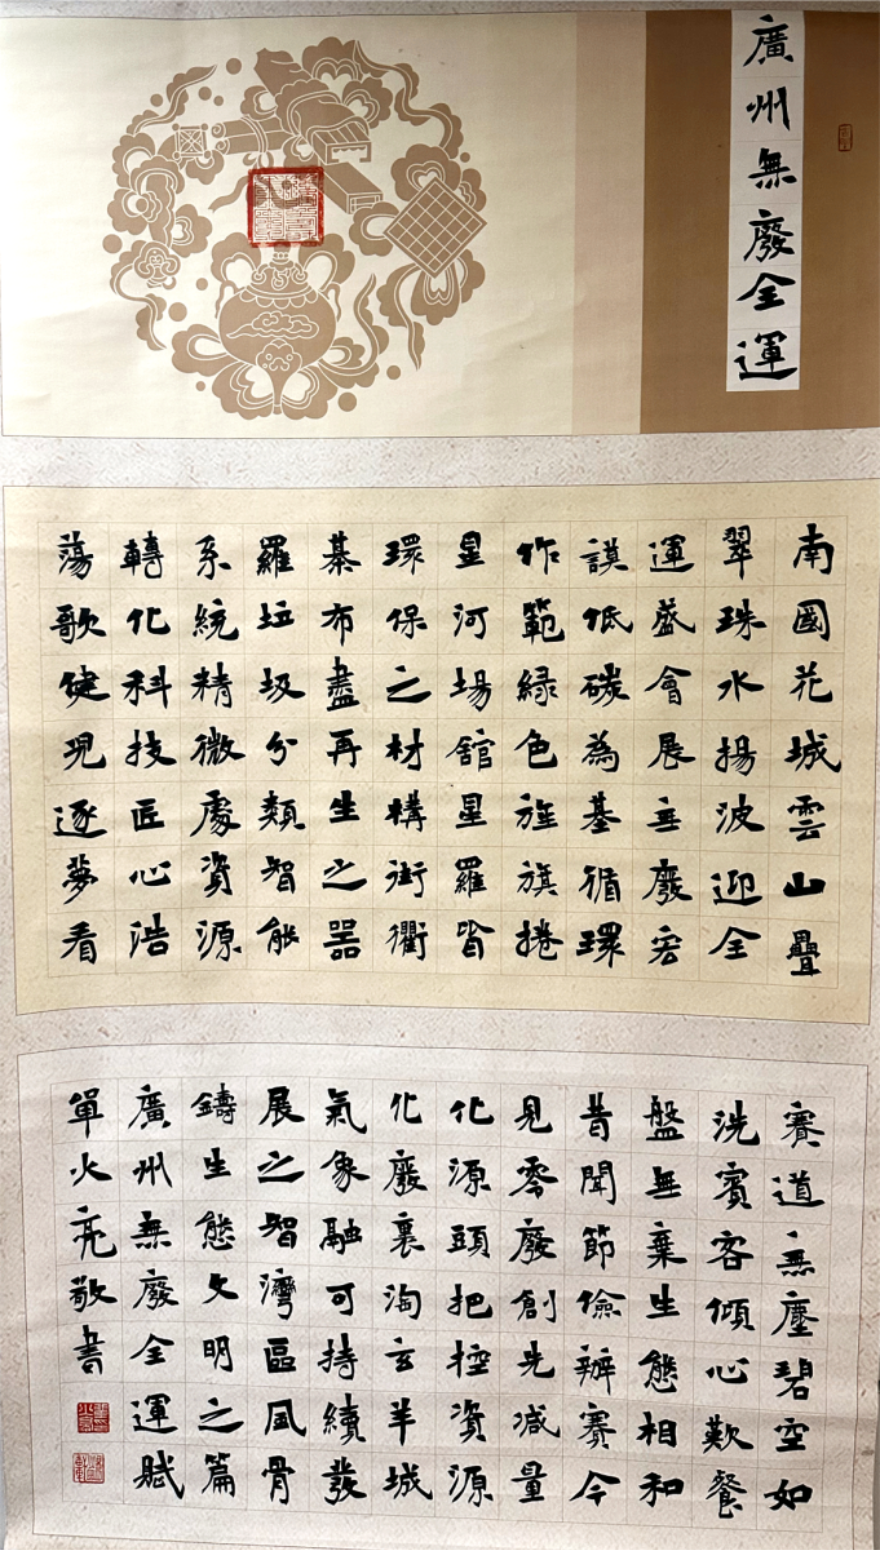 廣州無廢全運
南國花城雲山疊
翠珠水揚波迎全
運盛會展無廢宏
謨低碳為基循環
作範綠色旌旗捲
星河場館星羅皆
環保之材構街衢
棊布盡再生之器
羅垃圾分類智能
系統精微處資源
轉化科技匠心浩
蕩歌健兒逐夢看
賽道無塵碧空如
洗賓客傾心歎餐
盤無棄生態相和
昔聞節儉辦賽今
見零廢創先減量
化源頭把控資源
化廢裏淘玄羊城
氣象融可持續發
展之智灣區風骨
鑄生態文明之篇
廣州無廢全運賦
單火亮敬書